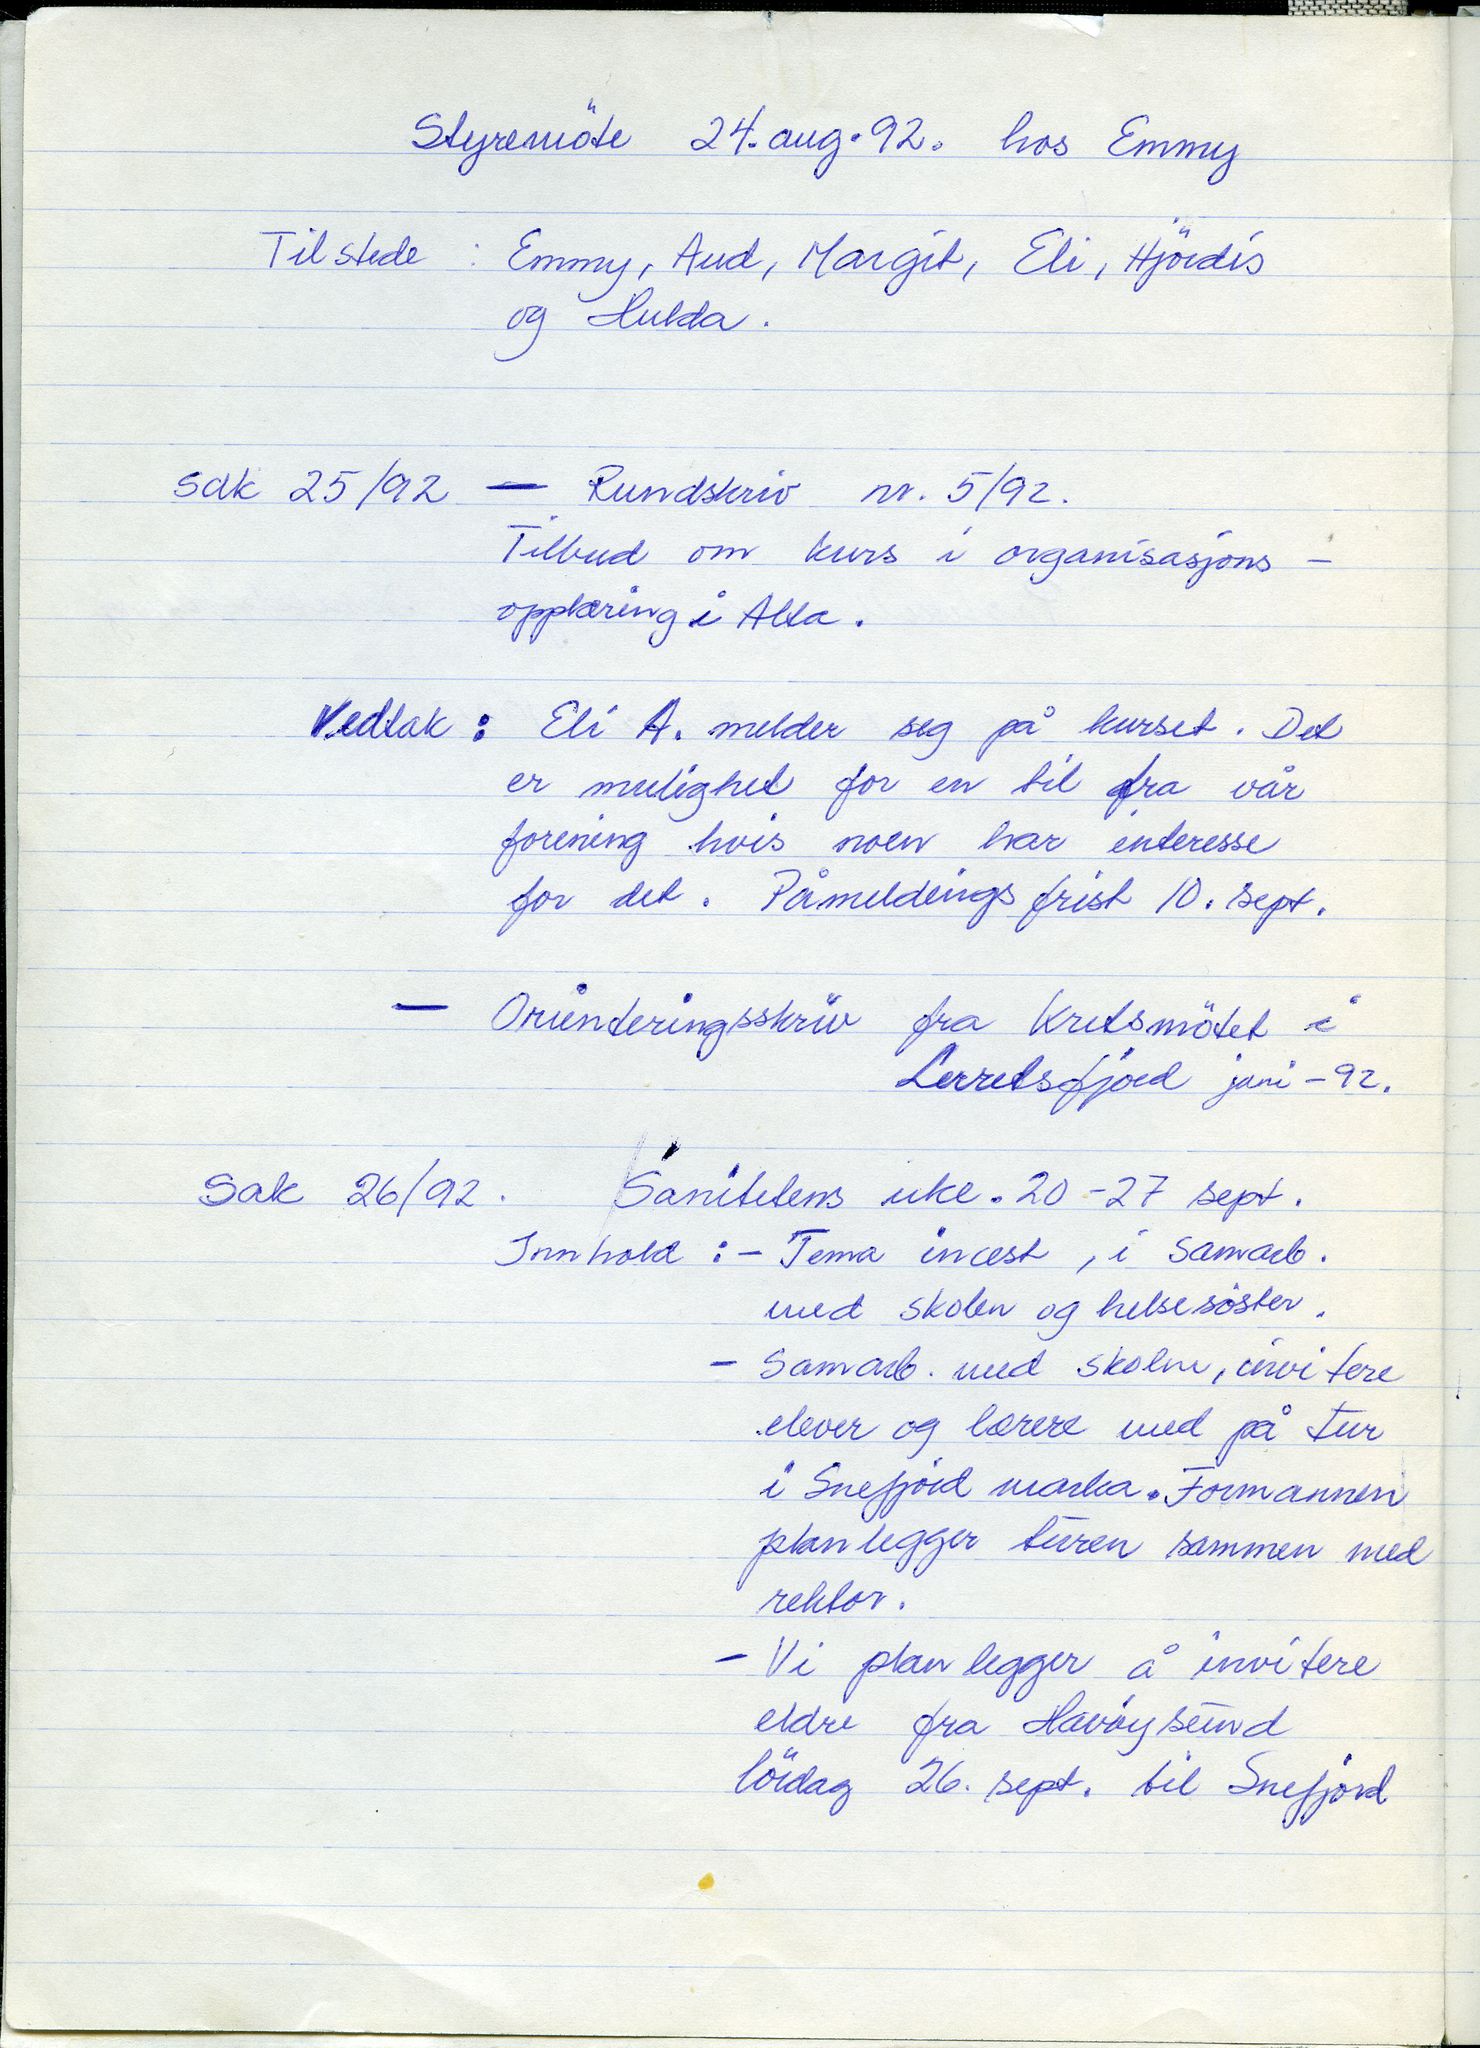 Styremöte 24. aug. 92. hos Emmy
Tilstede : Emmy, Aud, Margit, Eli, Hjördis
og Hulda.
Sak 25/92 — Rundskriv nr. 5/92.
Tilbud om kurs i organisasjons -
opplæring i Alta.
Vedtak : Eli A. melder seg på kurset. Det
er mulighet for en til fra vår
forening hvis noen har interesse
for det. Påmeldings frist 10. sept.
— Orienteringsskriv fra Kretsmötet i
Lerretsfjord juni - 92.
Sak 26/92. Sanitetens uke. 20 - 27 sept.
Innhold : - Tema incest, i Samarb.
med skolen og helsesöster.
- Samarb. med skolen, invitere
elever og lærere med på tur
i Snefjord marka. Formannen
planlegger turen sammen med
rektor.
- Vi planlegger å invitere
eldre fra Havöysund
lördag 26. sept. til Snefjord